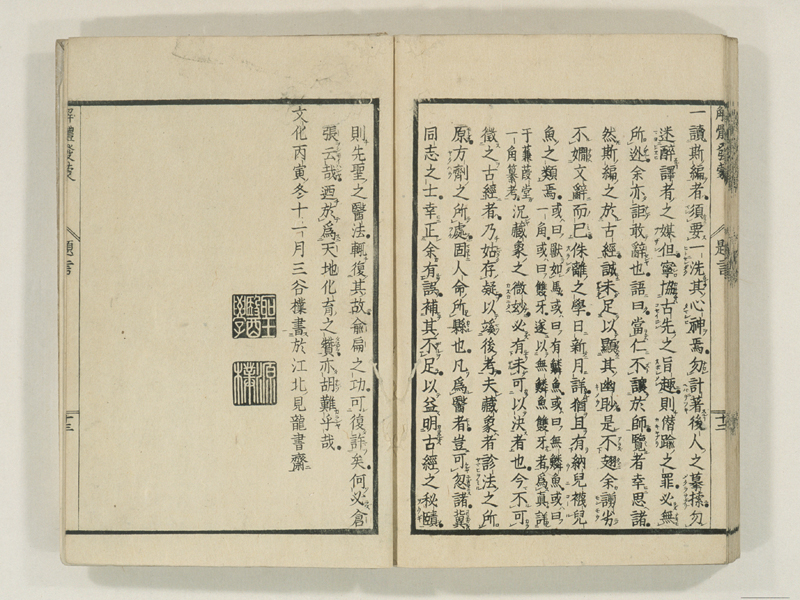 一讀斯編者須要一洗其心神焉勿計著後人之摹揉勿
迷醉譯者之媒但寧協古先之旨趣則僭踰之罪必無
所逃余亦詎敢辭也語曰當仁不讓於師覽者幸思諸
然斯編之於古經誠未足以顯其幽眇是不翅余謭劣
不嫺文辭而已侏離之學日新月詳猶且有納兒襪兒
魚之類焉或曰獸如馬或曰有鱗魚或曰無鱗魚或曰
一角或曰雙牙遂以無鱗魚雙牙者爲真詳
于蒹葭堂
一角纂考
況藏象之微妙必有未可以決者也今不可
徵之古經者乃姑存疑以藻後考夫藏象者診法之所
原方劑之所濾固人命所縣也凡爲醫者豈可忽諸冀
同志之士幸正余有誤補其不足以益明古經之秘賾
則先聖之醫法輒復其故兪扁之功可復許矣何必倉
張云哉迺於爲天地化育之贊亦胡難乎哉
文化丙寅冬十一月三谷樸書於江北見龍書齋
解體發蒙
題言
十二
解體發蒙
題言
十三